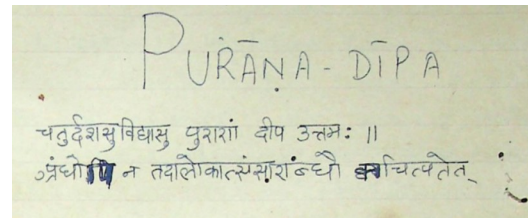 PURĀṆA - DĪPA
चतुर्दशसु विद्यासु पुराणं दीप उत्तमः ॥
अंधोऽपि न तदालोकात्संसारांन्धौ क्वचित्पतेत्